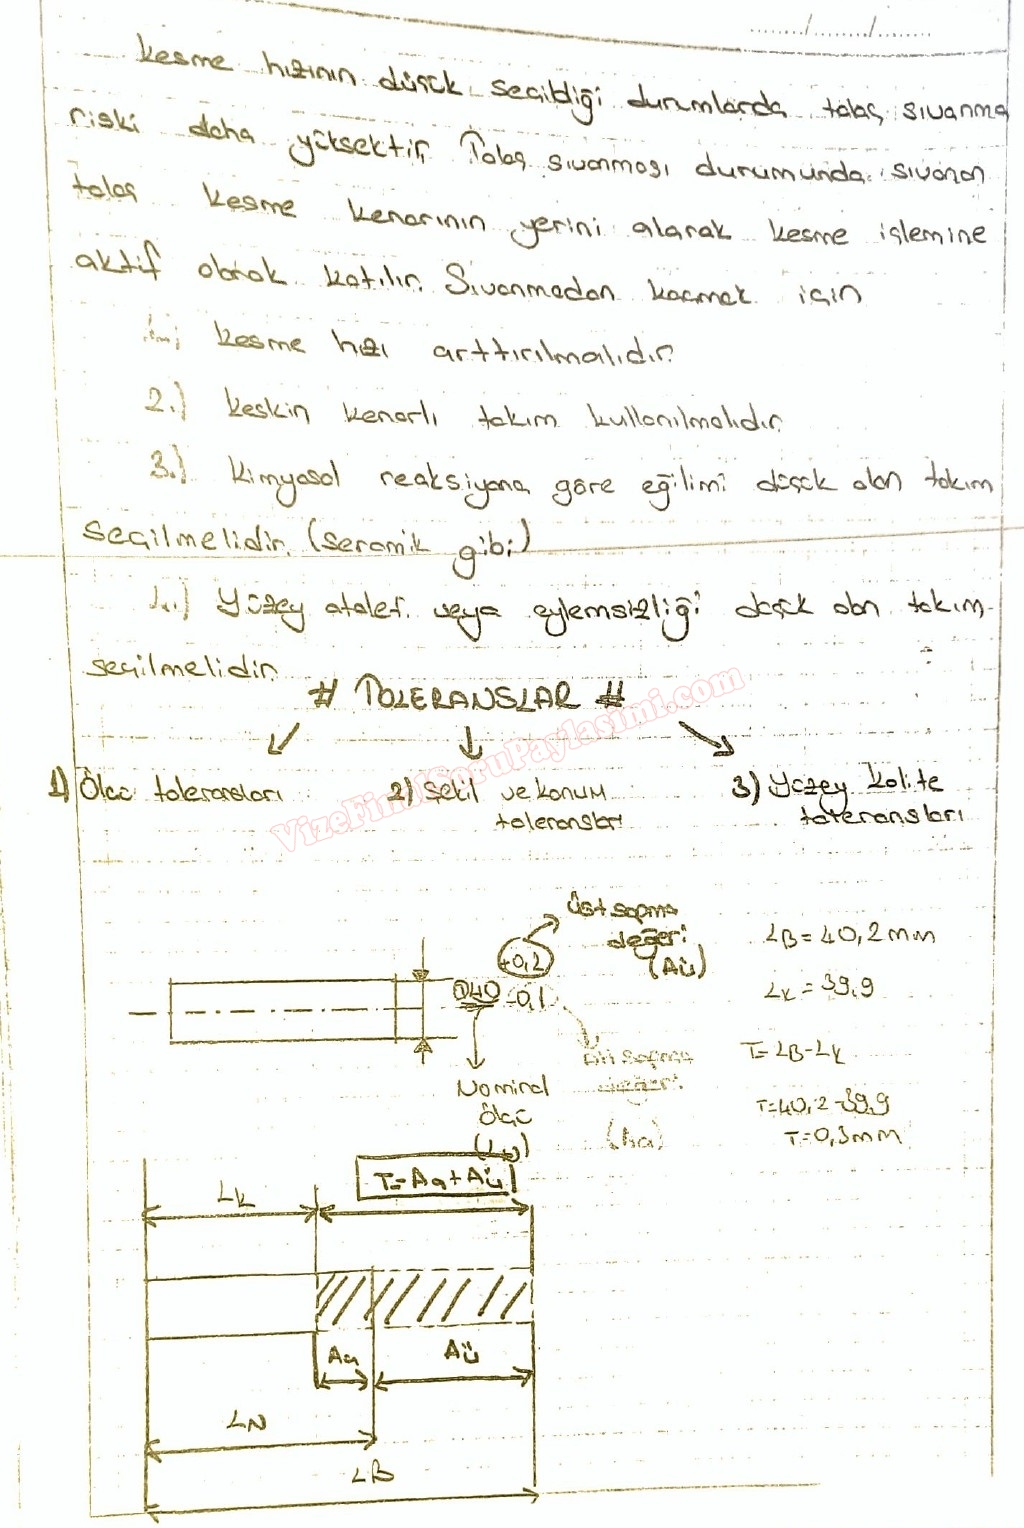 ....../....../......
Kesme hızının düşük seçildiği durumlarda talaş sıvanma
riski daha yüksektir. Talaş sıvanması durumunda sıvanan
talaş kesme kenarının yerini alarak kesme işlemine
aktif olarak katılır. Sıvanmadan kaçmak için
1.) Kesme hızı arttırılmalıdır.
2.) Keskin kenarlı takım kullanılmalıdır.
3.) Kimyasal reaksiyona göre eğilimi düşük olan takım
seçilmelidir. (seramik gibi)
4.) Yüzey atalet veya eylemsizliği düşük olan takım
seçilmelidir.
# TOLERANSLAR #
1) Ölçü toleransları
2) Şekil ve konum
toleransları
3) Yüzey kalite
toleransları
VizeFinalSoruPaylasimi.com
Üst sapma
değeri
(Aü)
+0,2
Ø40 -0,1
Nominal
ölçü
(LN)
Alt sapma
değeri
(Aa)
LB = 40,2 mm
LK = 39,9
T = LB - LK
T = 40,2 - 39,9
T = 0,3 mm
T = Aa + Aü
LK
Aa
Aü
LN
LB